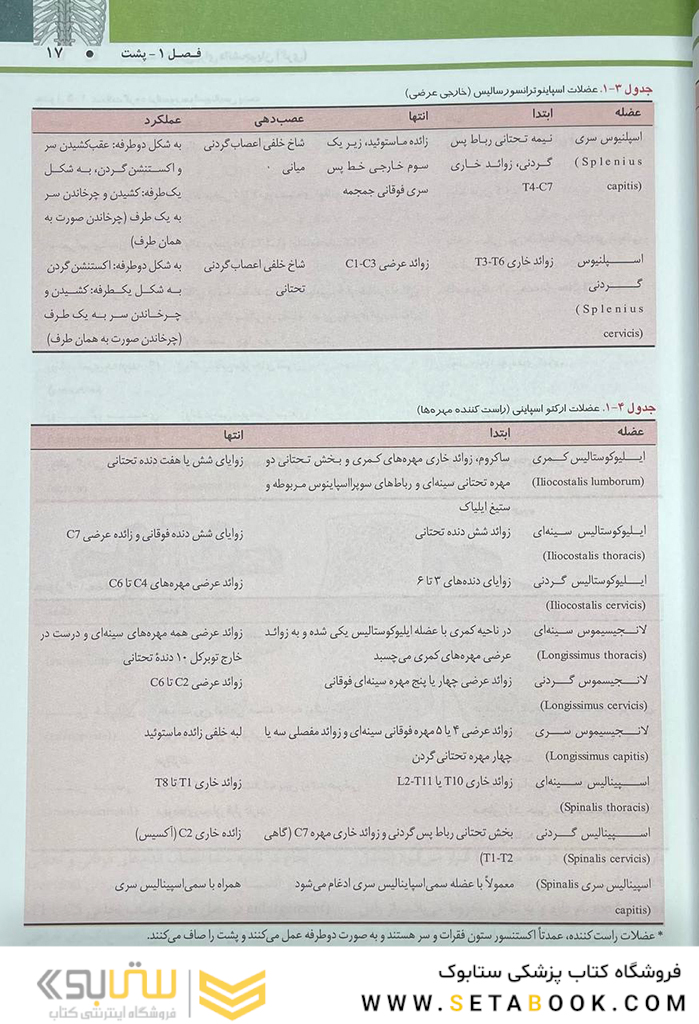 فصل ۱ - پشت ● ۱۷
جدول ۳-۱. عضلات اسپاینوترانسورسالیس (خارجی عرضی)
عضله ابتدا انتها عصب‌دهی عملکرد
اسپلنیوس سری نیمه تحتانی رباط پس زائده ماستوئید، زیر یک شاخ خلفی اعصاب گردنی به شکل دوطرفه: عقب‌کشیدن سر
(Splenius گردنی، زوائد خاری سوم خارجی خط پس میانی و اکستنشن گردن، به شکل
capitis) T4-C7 سری فوقانی جمجمه یک‌طرفه: کشیدن و چرخاندن سر
به یک طرف (چرخاندن صورت به
همان طرف)
اسپلنیوس زوائد خاری T3-T6 زوائد عرضی C1-C3 شاخ خلفی اعصاب گردنی به شکل دوطرفه: اکستنشن گردن
گردنی تحتانی به شکل یک‌طرفه: کشیدن و
(Splenius چرخاندن سر به یک طرف
cervicis) (چرخاندن صورت به همان طرف)
جدول ۴-۱. عضلات ارکتو اسپاینی (راست کننده مهره‌ها)
عضله ابتدا انتها
ایلیوکوستالیس کمری ساکروم، زوائد خاری مهره‌های کمری و بخش تحتانی دو زوایای شش یا هفت دنده تحتانی
(Iliocostalis lumborum) مهره تحتانی سینه‌ای و رباط‌های سوپرااسپاینوس مربوطه و
ستیغ ایلیاک
ایلیوکوستالیس سینه‌ای زوائد شش دنده تحتانی زوایای شش دنده فوقانی و زائده عرضی C7
(Iliocostalis thoracis)
ایلیوکوستالیس گردنی زوایای دنده‌های ۳ تا ۶ زوائد عرضی مهره‌های C4 تا C6
(Iliocostalis cervicis)
لانجیسیموس سینه‌ای در ناحیه کمری با عضله ایلیوکوستالیس یکی شده و به زوائد زوائد عرضی همه مهره‌های سینه‌ای و درست در
(Longissimus thoracis) عرضی مهره‌های کمری می‌چسبد خارج توبرکل ۱۰ دندهٔ تحتانی
لانجیسموس گردنی زوائد عرضی چهار یا پنج مهره سینه‌ای فوقانی زوائد عرضی C2 تا C6
(Longissimus cervicis)
لانجیسیموس سری زوائد عرضی ۴ یا ۵ مهره فوقانی سینه‌ای و زوائد مفصلی سه یا لبه خلفی زائده ماستوئید
(Longissimus capitis) چهار مهره تحتانی گردن
اسپینالیس سینه‌ای زوائد خاری T10 یا L2-T11 زوائد خاری T1 تا T8
(Spinalis thoracis)
اسپینالیس گردنی بخش تحتانی رباط پس گردنی و زوائد خاری مهره C7 (گاهی زائده خاری C2 (آکسیس)
(Spinalis cervicis) T1-T2)
اسپینالیس سری (Spinalis معمولاً با عضله سمی‌اسپاینالیس سری ادغام می‌شود همراه با سمی‌اسپینالیس سری
capitis)
* عضلات راست‌کننده، عمدتاً اکستنسور ستون فقرات و سر هستند و به صورت دوطرفه عمل می‌کنند و پشت را صاف می‌کنند.
فروشگاه کتاب پزشکی ستابوک
WWW.SETABOOK.COM
ستابوک
فروشگاه اینترنتی کتاب